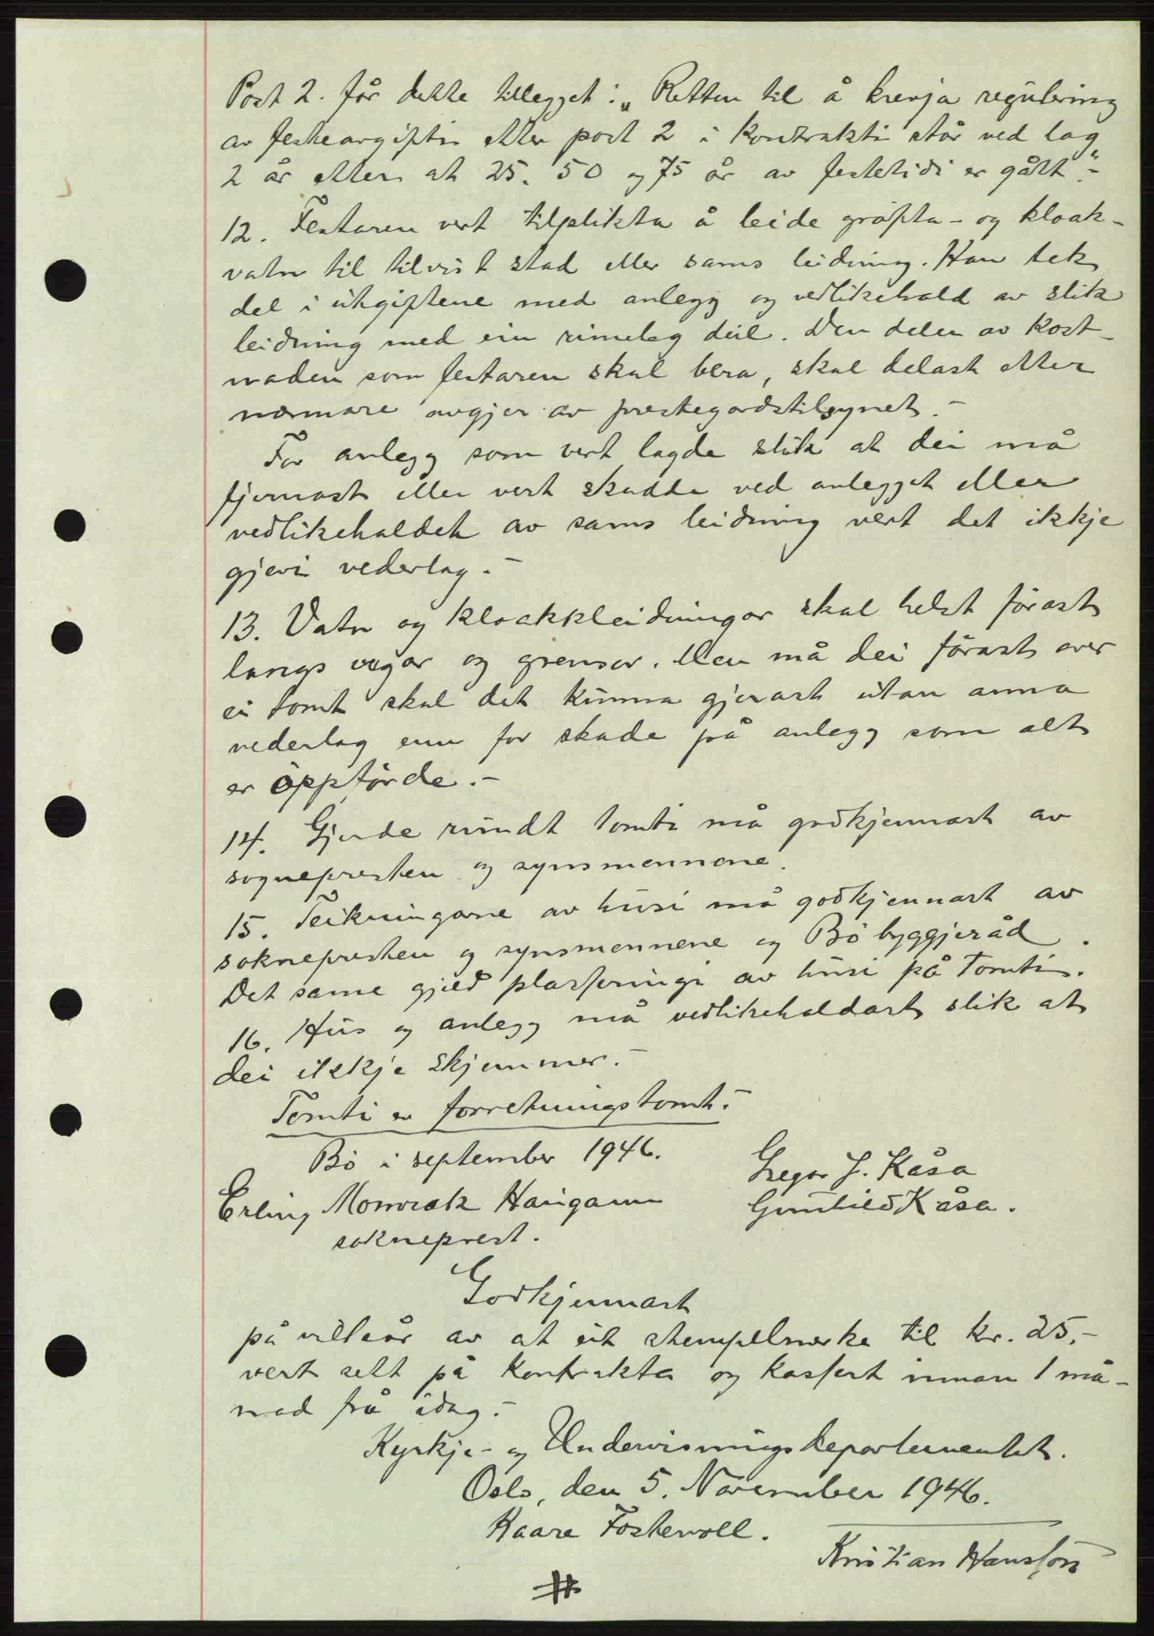 Post 2. får dette tillegget: „Retten til å krevja regulering
av festeavgifti etter post 2 i kontrakti står ved lag
2 år etter at 25. 50 og 75 år av festetidi er gått".-
12. Festaren vert tilplikta å leide grøfta- og kloak-
vatn til tilvist stad eller sams leidning. Han tek
del i utgiftene med anlegg og vedlikehald av slik
leidning med ein rimeleg deil. Den delen av kost-
naden som festaren skal bera, skal delast etter
nærmare avgjer av prestegardstilsynet.-
For anlegg som vert lagde slik at dei må
fjernast eller vert skadde ved anlegget eller
vedlikehaldet av sams leidning vert det ikkje
gjevi vederlag.-
13. Vatn og kloakkleidningar skal helst førast
langs vegar og grenser. Men må dei førast over
ei tomt skal det kunna gjerast utan anna
vederlag enn for skade på anlegg som alt
er oppførde.-
14. Gjerde rundt tomti må godkjennast av
sognepresten og synsmennene.
15. Teikningane av husi må godkjennast av
soknepresten og synsmennene og Bø byggjeråd.
Det same gjeld plasseringi av husi på tomti.
16. Hus og anlegg må vedlikehaldast slik at
dei ikkje skjemmer.-
Tomti er forretningstomt.-
Bø i september 1946.
Gregar J. Kåsa
Erling Monrak Haugann
Gunhild Kåsa.
sokneprest.
Godkjennast
på vilkår av at eit stempelmerke til kr. 25.-
vert sett på kontrakta og kassert innan 1 må-
nad frå idag.-
Kyrkje- og Undervisningsdepartementet.
Oslo, den 5. November 1946.
Kaare Fostervoll.
Kristian Hansson